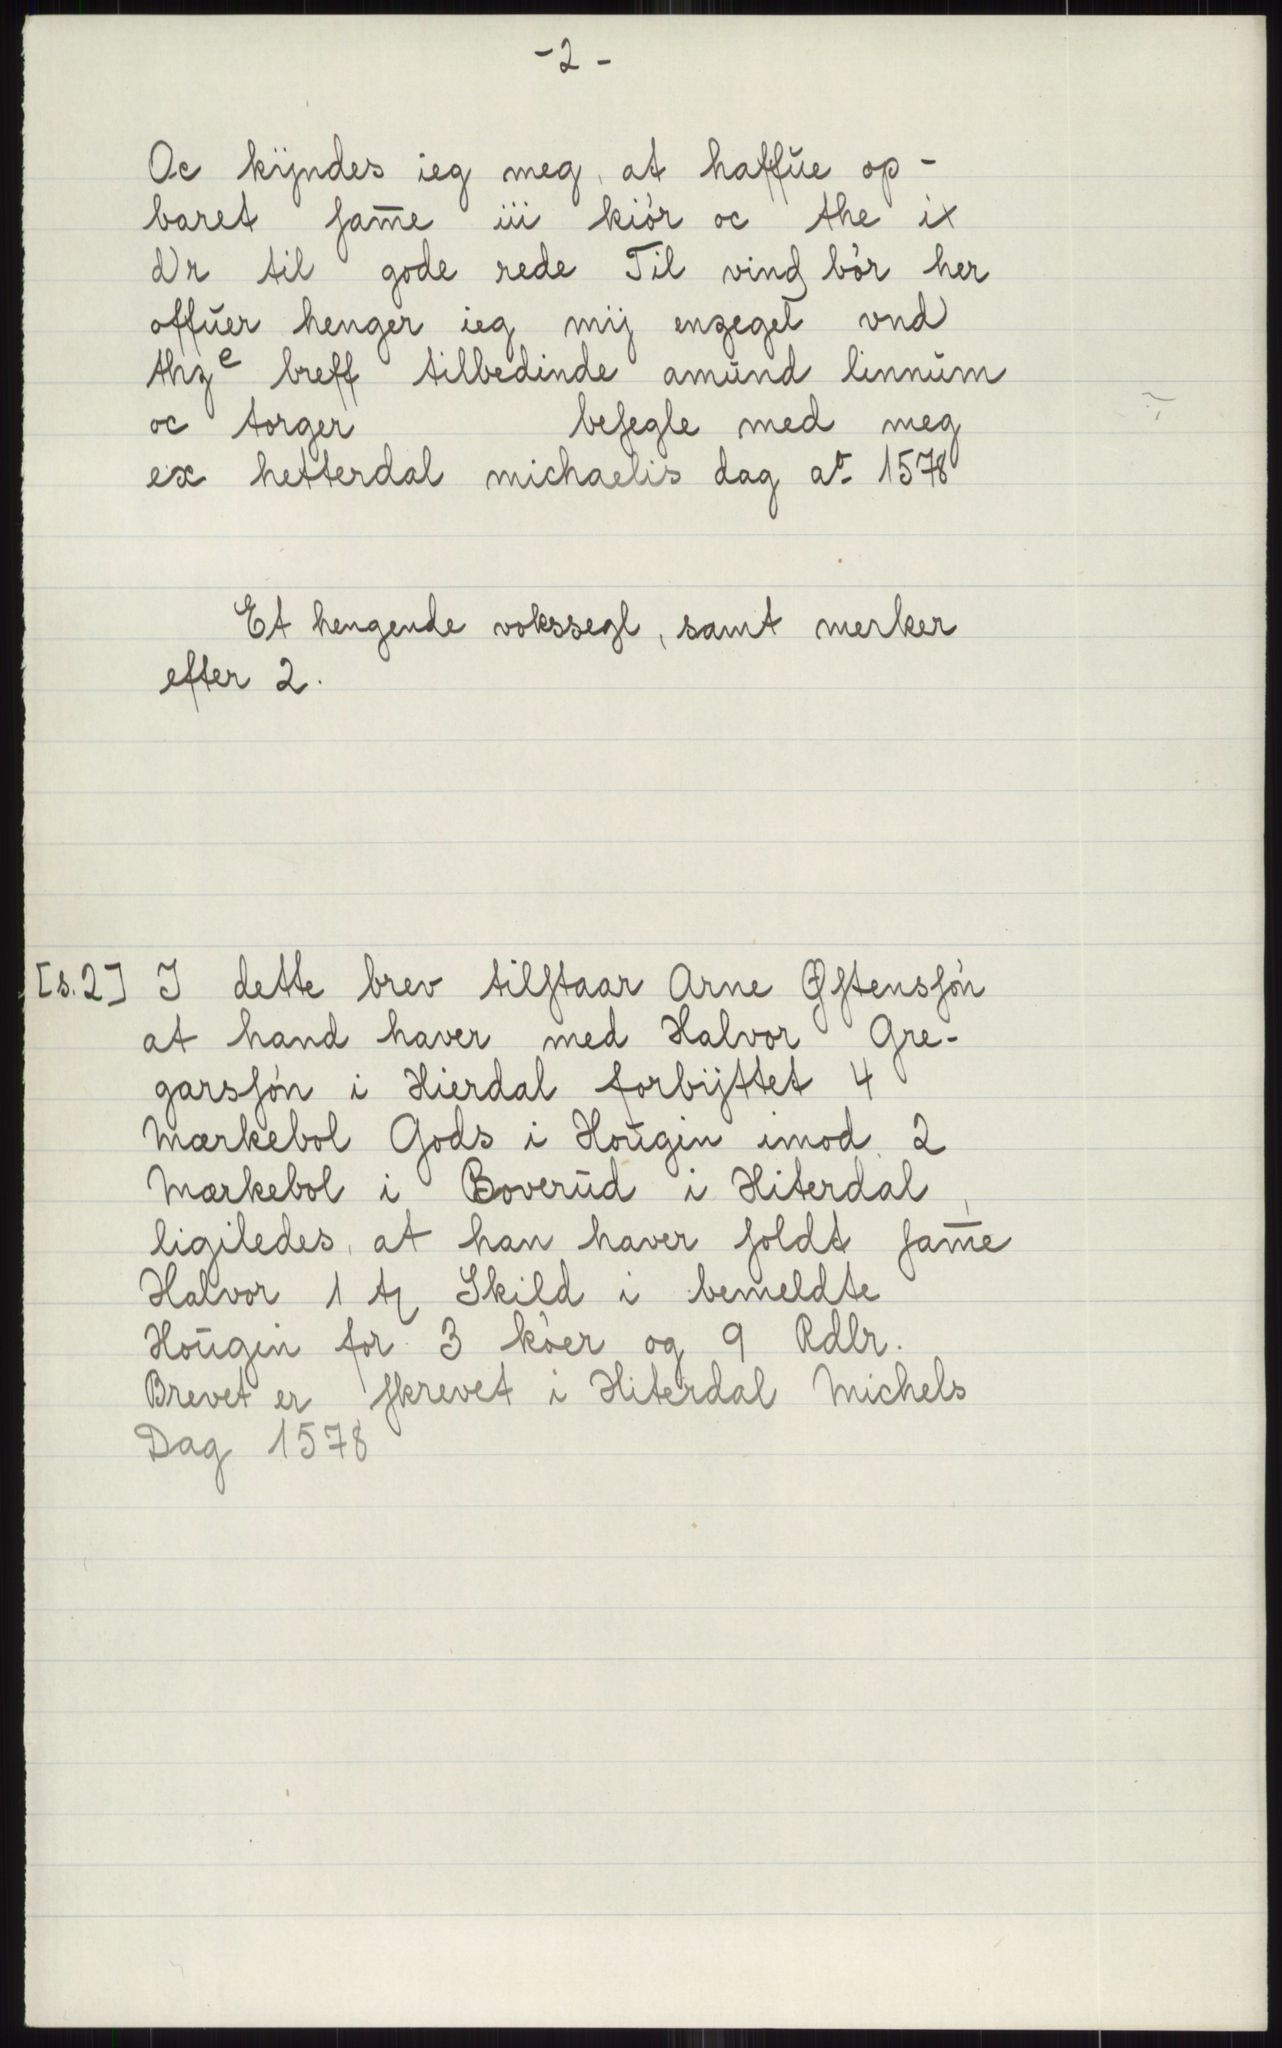 -2-
Oc kÿndes ieg meg, at haffŭe op-
baret ſam̅e iii kiór oc the ix
dr til gode rede Til vind bór her
offŭer henger ieg mÿ enzegel vnd
thzᵉ breff tilbedinde amŭnd linnŭm
oc torger beſegle med meg
ex hetterdal michaelis dag aº 1578
Et hengende vokssegl, samt merker
efter 2.
[s.2] I dette brev tilſtaar Arne Øſtensſón
at hand haver med Halvor Gre-
garsſón i Hierdal forbÿttet 4
Mærkebol Gods i Hoŭgin imod 2
Mærkebol i Boverŭd i Hiterdal,
ligiledes, at han haver ſoldt ſam̅e
Halvor 1 Skild i bemeldte
Hoŭgin for 3 kóer og 9 Rdlr.
Brevet er ſkrevet i Hiterdal Michels
Dag 1578